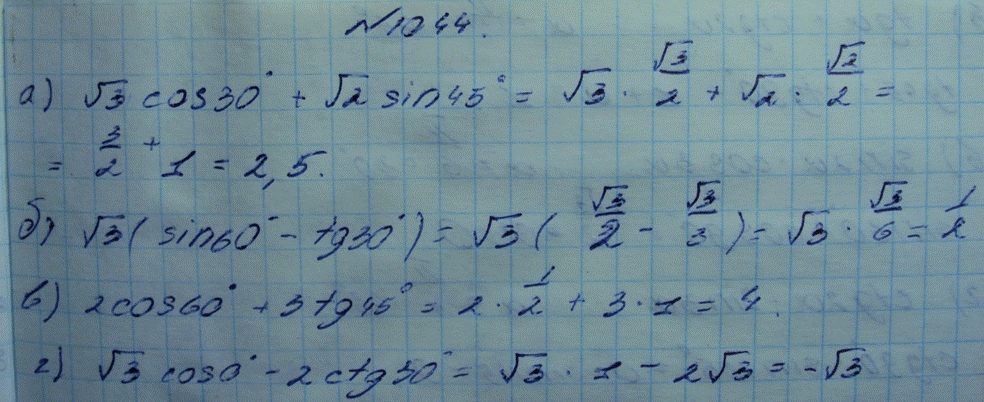 №1044.
а) √3 cos30° + √2 sin45° = √3 · √3/2 + √2 · √2/2 =
= 3/2 + 1 = 2,5.
б) √3( sin60° - tg30° ) = √3 ( √3/2 - √3/3 ) = √3 · √3/6 = 1/2
в) 2cos60° + 3tg45° = 2 · 1/2 + 3 · 1 = 4.
г) √3 cos0° - 2ctg30° = √3 · 1 - 2√3 = -√3